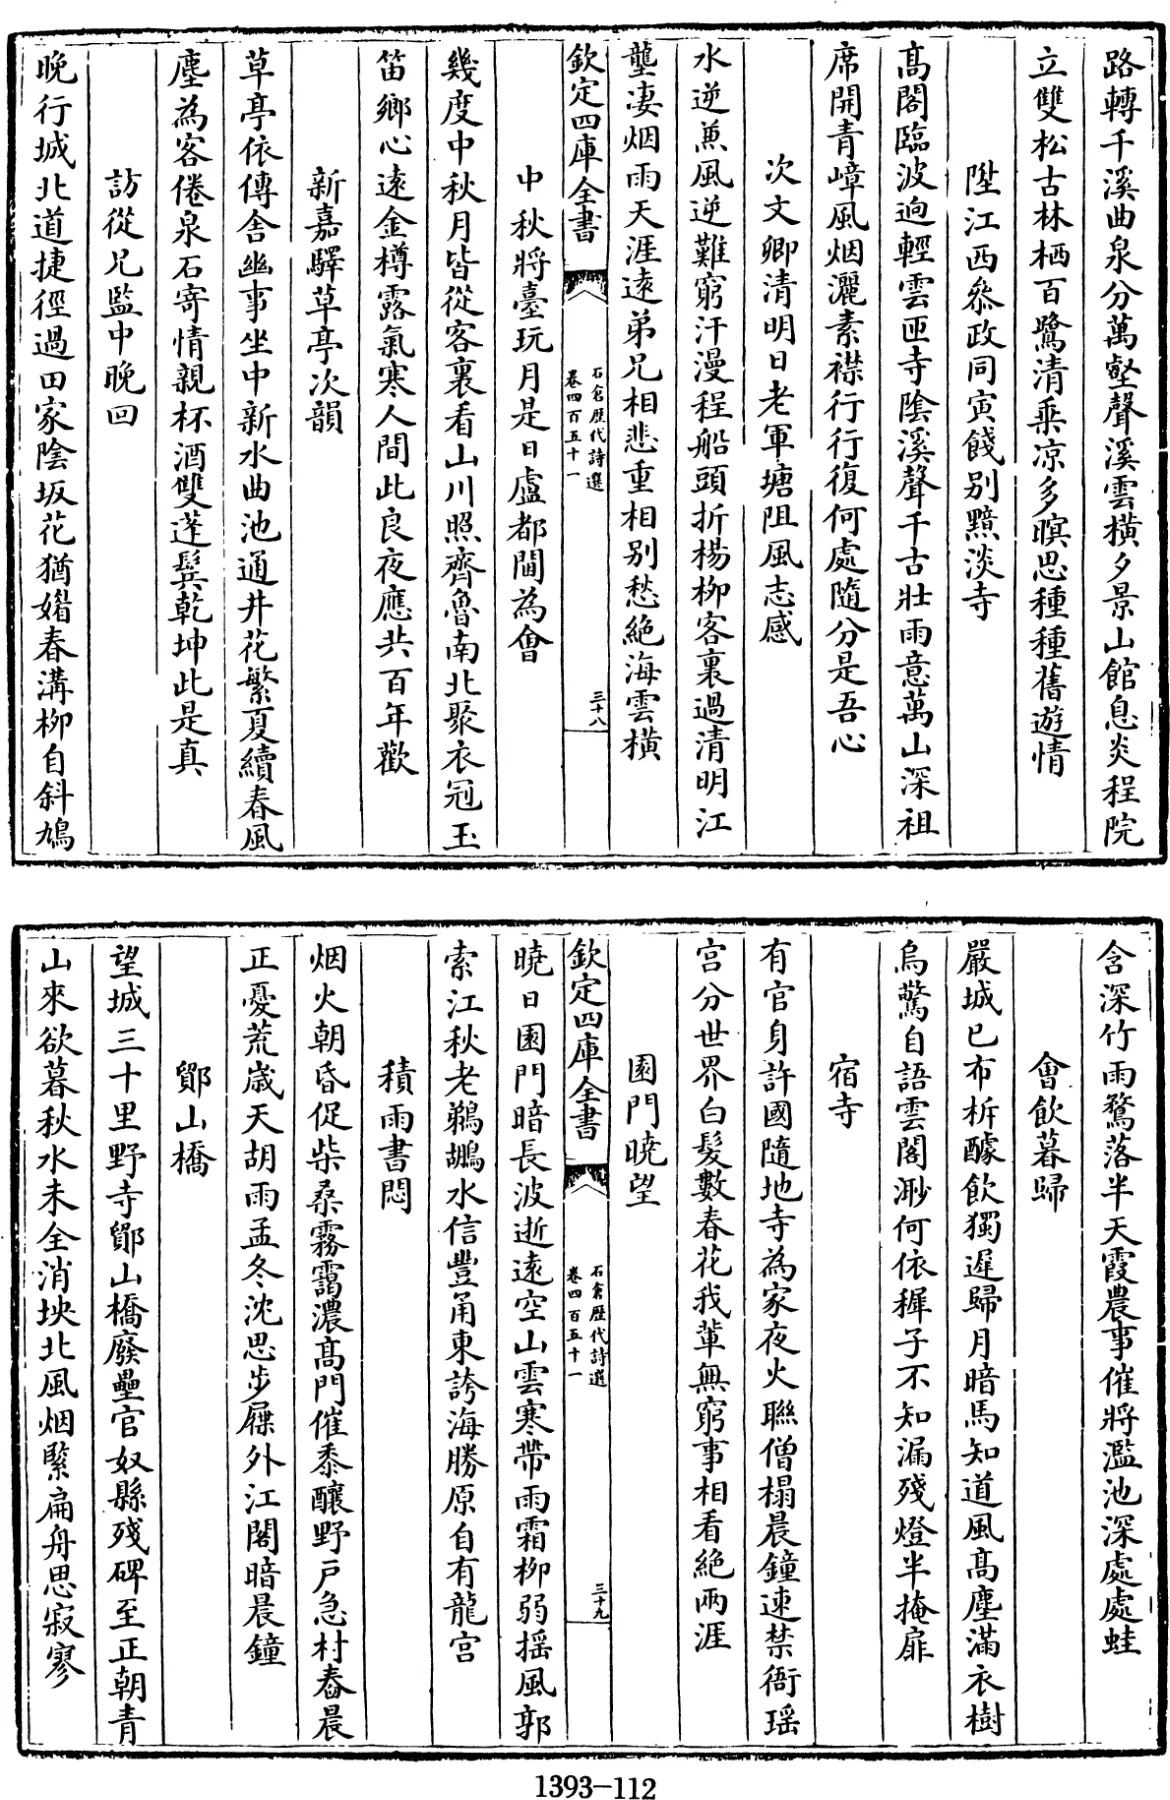 路轉千溪曲泉分萬壑聲溪雲橫夕景山館息炎程院
立雙松古林栖百鷺清乘凉多暝思種種舊遊情
陞江西叅政同寅餞别黯淡寺
髙閣臨波逈輕雲匝寺陰溪聲千古壯雨意萬山深祖
席開青嶂風烟灑素襟行行復何處隨分是吾心
次文卿清明日老軍塘阻風志感
水逆兼風逆難窮汗漫程船頭折楊柳客裏過清明江
壟凄烟雨天涯逺弟兄相悲重相别愁絶海雲橫
欽定四庫全書
石倉歴代詩選
卷四百五十一
三十八
中秋將臺玩月是日盧都閫為會
幾度中秋月皆從客裏看山川照齊魯南北聚衣冠玉
笛鄉心逺金樽露氣寒人間此良夜應共百年歡
新嘉驛草亭次韻
草亭依傳舎幽事坐中新水曲池通井花繁夏續春風
塵為客倦泉石寄情親杯酒雙蓬鬂乾坤此是真
訪從兄監中晚回
晚行城北道捷徑過田家陰坂花猶媚春溝柳自斜鳩
含深竹雨鶩落半天霞農事催將濫池深處處蛙
會飲暮歸
嚴城已布柝醵飲獨遲歸月暗馬知道風髙塵滿衣樹
烏驚自語雲閣渺何依稺子不知漏殘燈半掩扉
宿寺
有官身許國隨地寺為家夜火聯僧榻晨鐘速禁衙瑶
宫分世界白髪數春花我輩無窮事相看絶兩涯
圊門曉望
曉日圊門暗長波逝逺空山雲寒帶雨霜柳弱揺風郭
索江秋老鵜鶘水信豐甬東誇海勝原自有龍宫
欽定四庫全書
石倉歴代詩選
卷四百五十一
三十九
積雨書悶
烟火朝昏促柴桑霧靄濃髙門催黍釀野戸急村舂晨
正憂荒歳天胡雨孟冬沈思步屧外江閣暗晨鐘
鄮山橋
望城三十里野寺鄮山橋廢壘官奴縣殘碑至正朝青
山來欲暮秋水未全消坱北風烟緊扁舟思寂寥
1393-112